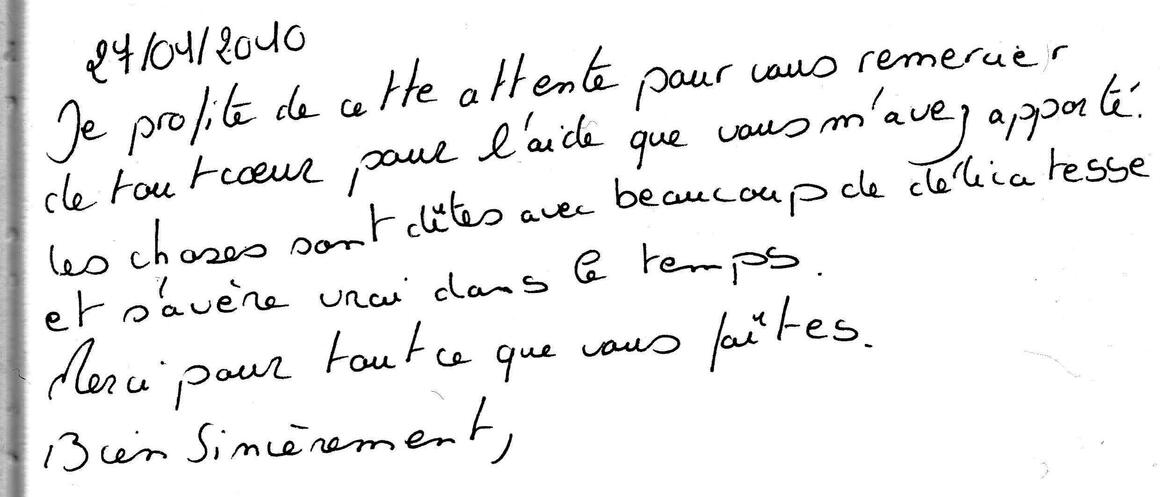 27/04/2010
Je profite de cette attente pour vous remercier
de tout cœur pour l'aide que vous m'avez apporté.
les choses sont dîtes avec beaucoup de délicatesse
et s'avère vrai dans le temps.
Merci pour tout ce que vous faîtes.
Bien Sincèrement,